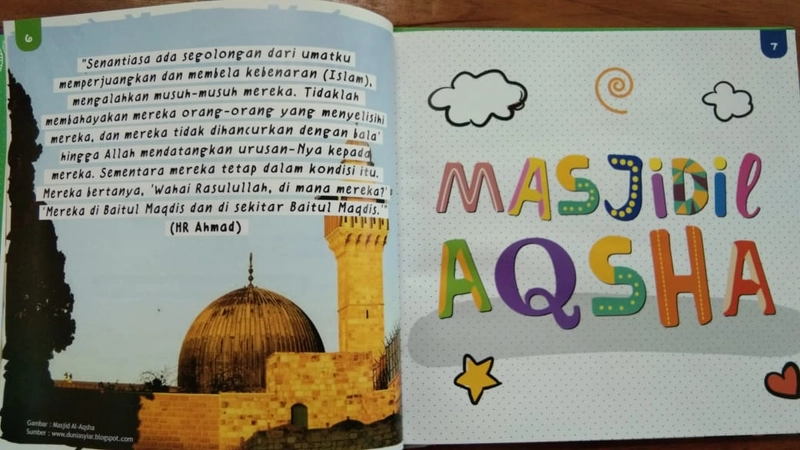 6
"Senantiasa ada segolongan dari umatku
memperjuangkan dan membela kebenaran (Islam),
mengalahkan musuh-musuh mereka. Tidaklah
membahayakan mereka orang-orang yang menyelisihi
mereka, dan mereka tidak dihancurkan dengan bala'
hingga Allah mendatangkan urusan-Nya kepada
mereka. Sementara mereka tetap dalam kondisi itu.
Mereka bertanya, 'Wahai Rasulullah, di mana mereka?'
'Mereka di Baitul Maqdis dan di sekitar Baitul Maqdis.'"
(HR Ahmad)
Gambar : Masjid Al-Aqsha
Sumber : www.duniasyiar.blogspot.com
7
MASJIDIL
AQSHA